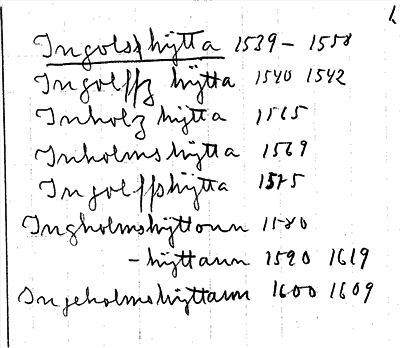 Ingolsshÿtta 1539 – 1558
Ingolffz hÿtta 1540 1542
Inholz hÿtta 1565
Inholmshÿtta 1569
Ingolffshÿtta 1575
Ingholmshÿttonn 1580
– hÿttann 1590 1619
Ingeholmshÿttann 1600 1609